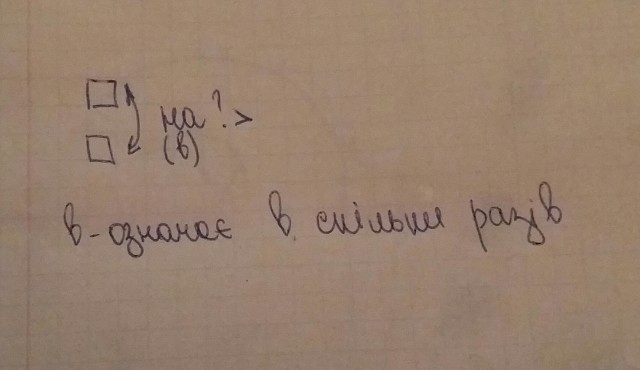 на ? >
(в)
в - означає в скільки разів